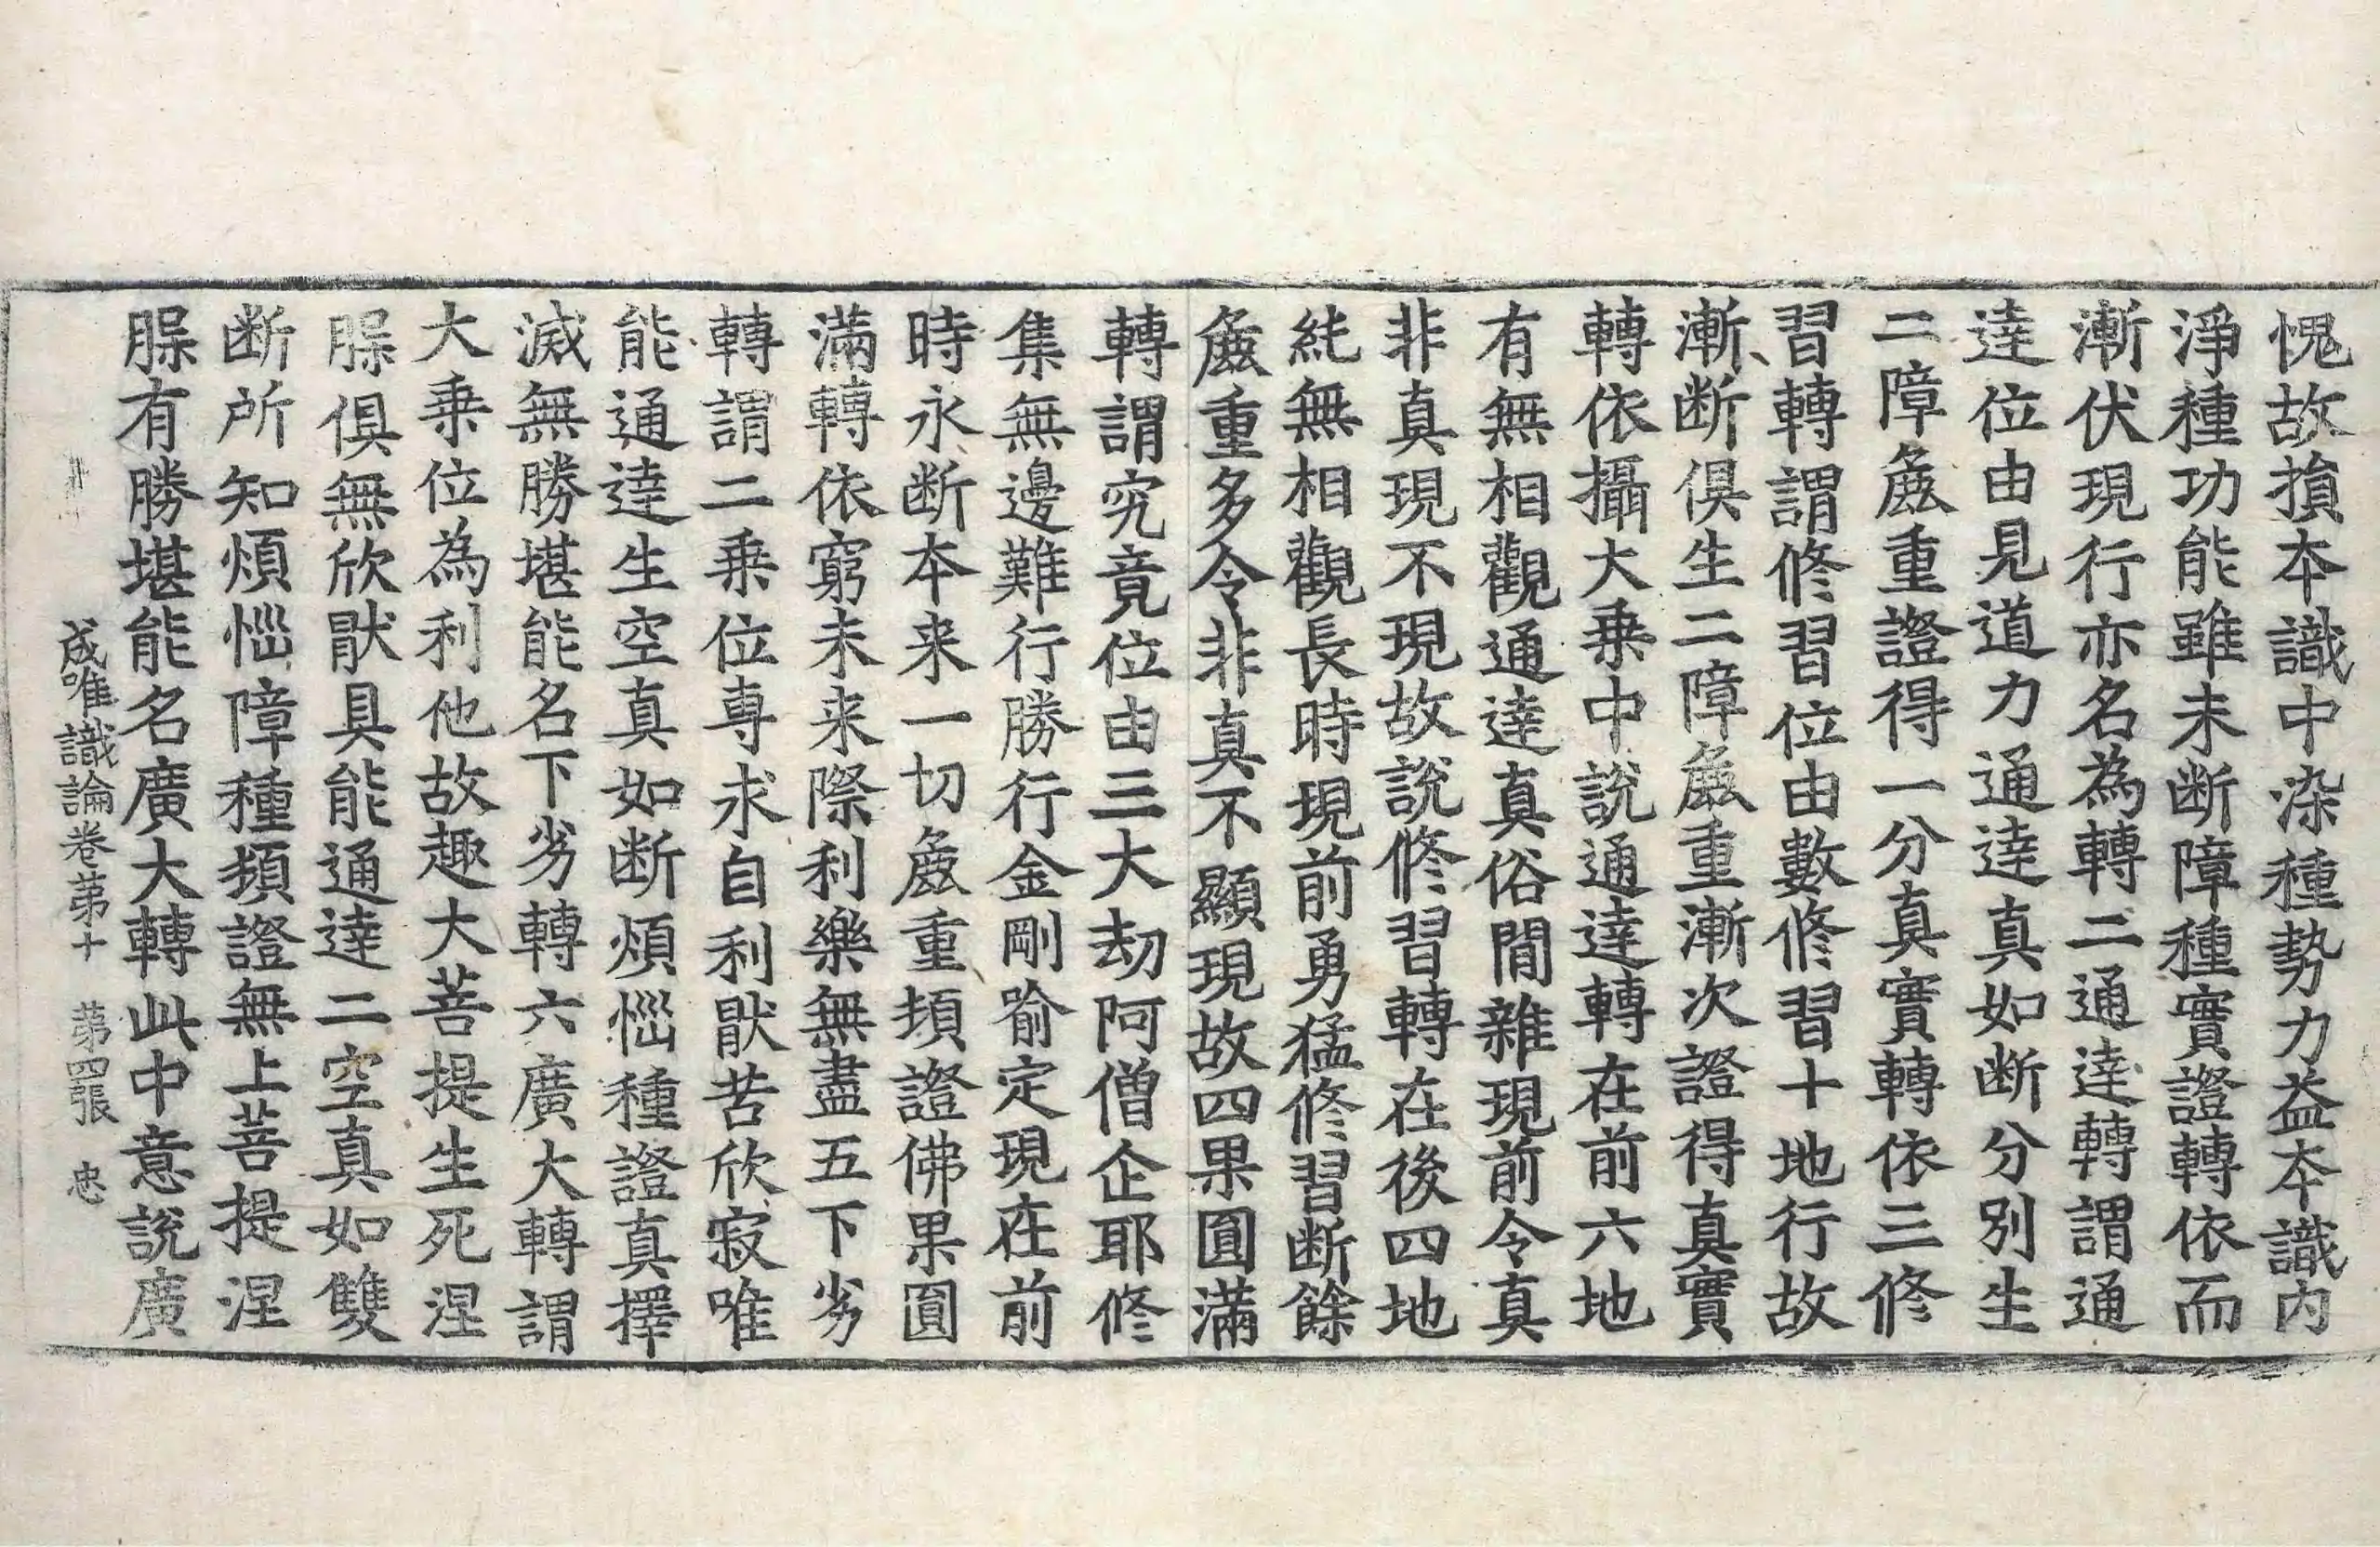 愧故損本識中染種勢力益本識內
淨種功能雖未断障種實證轉依而
漸伏現行亦名為轉二通達轉謂通
達位由見道力通達真如断分別生
二障麁重證得一分真實轉依三修
習轉謂修習位由數修習十地行故
漸断俱生二障麁重漸次證得真實
轉依攝大乗中說通達轉在前六地
有無相觀通達真俗間雜現前令真
非真現不現故說修習轉在後四地
純無相觀長時現前勇猛修習断餘
麁重多令非真不顯現故四果圓滿
轉謂究竟位由三大劫阿僧企耶修
集無邊難行勝行金剛喻定現在前
時永断本来一切麁重頓證佛果圓
滿轉依窮未来際利樂無盡五下劣
轉謂二乗位專求自利猒苦欣寂唯
能通達生空真如断煩惱種證真擇
滅無勝堪能名下劣轉六廣大轉謂
大乗位為利他故趣大菩提生死涅
槃俱無欣猒具能通達二空真如雙
断所知煩惱障種頓證無上菩提涅
槃有勝堪能名廣大轉此中意說廣
成唯識論卷苐十 苐四張 忠